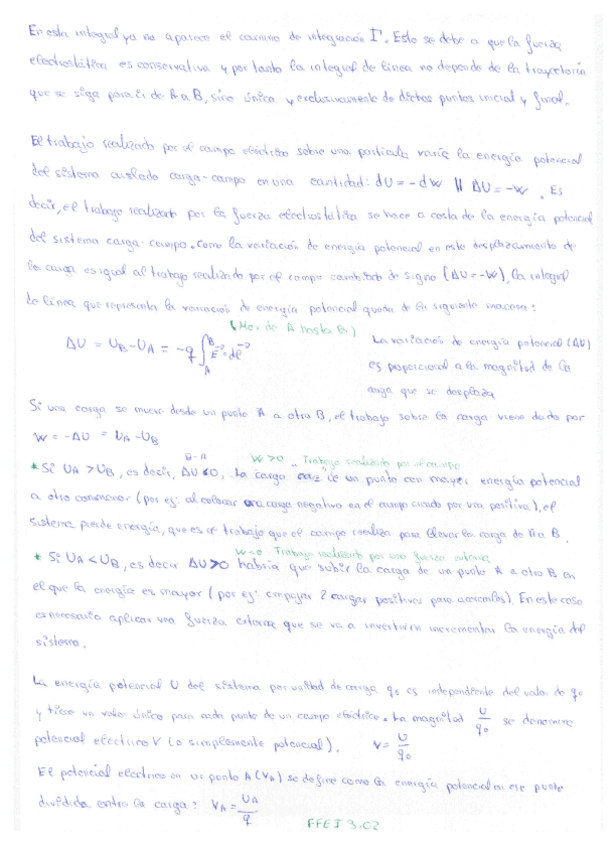 En esta integral ya no aparece el camino de integración Γ. Esto se debe a que la fuerza
electrostática es conservativa y por tanto la integral de línea no depende de la trayectoria
que se siga para ir de A a B, sino única y exclusivamente de dichos puntos inicial y final.
El trabajo realizado por el campo eléctrico sobre una partícula varía la energía potencial
del sistema aislado carga-campo en una cantidad: dU = -dW || ΔU = -W. Es
decir, el trabajo realizado por la fuerza electrostática se hace a costa de la energía potencial
del sistema carga-campo. Como la variación de energía potencial en este desplazamiento de
la carga es igual al trabajo realizado por el campo cambiado de signo (ΔU = -W), la integral
de línea que representa la variación de energía potencial queda de la siguiente manera:
(Mov de A hasta B)
ΔU = UB - UA = -q ∫_A^B E · dl
La variación de energía potencial (ΔU)
es proporcional a la magnitud de la
carga que se desplaza
Si una carga se mueve desde un punto A a otro B, el trabajo sobre la carga viene dado por
W = -ΔU = UA - UB
B-A W>0 Trabajo realizado por el campo
* Si UA > UB, es decir, ΔU<0, la carga "cae" de un punto con mayor energía potencial
a otro con menor (por ej: al colocar una carga negativa en el campo creado por una positiva), el
sistema pierde energía, que es el trabajo que el campo realiza para llevar la carga de A a B.
W<0 Trabajo realizado por una fuerza externa
* Si UA < UB, es decir ΔU>0 habría que subir la carga de un punto A a otro B en
el que la energía es mayor (por ej: empujar 2 cargas positivas para acercarlas). En este caso
es necesario aplicar una fuerza externa que se va a invertir en incrementar la energía del
sistema.
La energía potencial U del sistema por unidad de carga q0 es independiente del valor de q0
y tiene un valor único para cada punto de un campo eléctrico. La magnitud U/q0 se denomina
potencial eléctrico V (o simplemente potencial). V = U/q0
El potencial electrico en un punto A (VA) se define como la energía potencial en ese punto
dividida entre la carga: VA = UA/q
FFEI 3.02